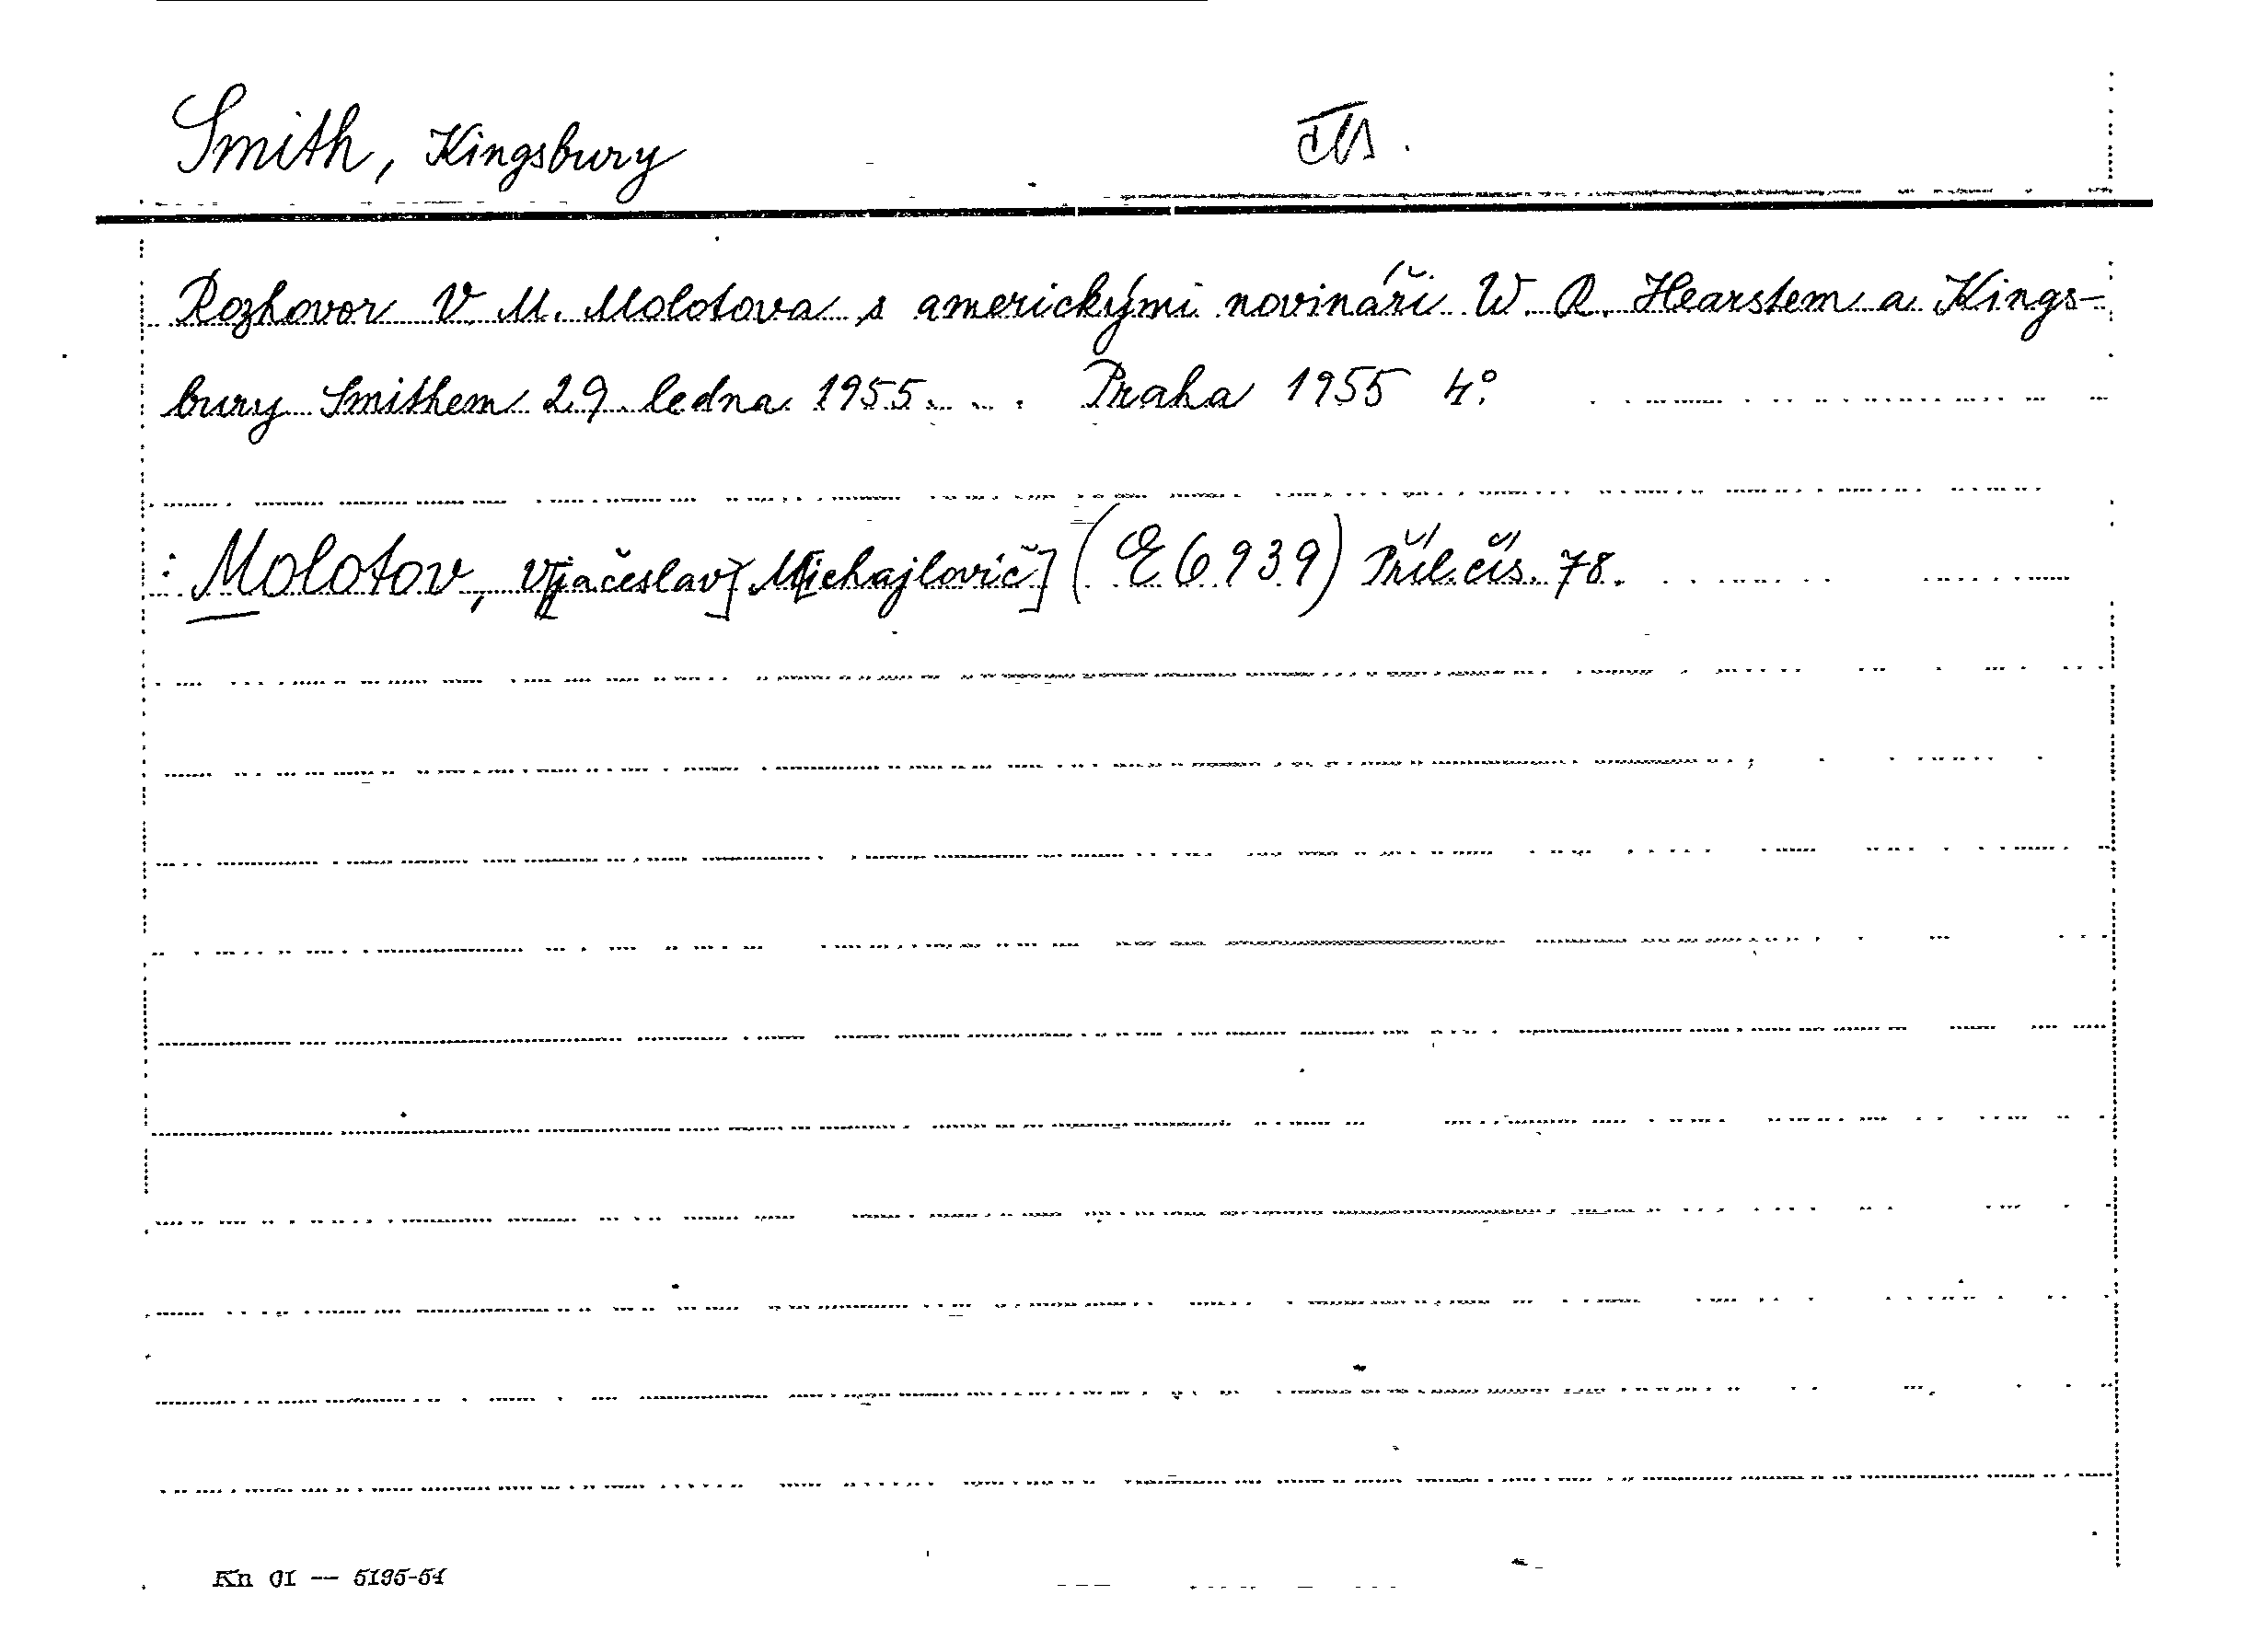 Smith, Kingsbury
Rozhovor V. M. Molotova s americkými novináři W. R. Hearstem a Kings-
bury Smithem 29. ledna 1955. . . Praha 1955 4°.
: Molotov, V[jačeslav] M[ichajlovič] (E 6939) Příl. čís. 78.
Kn 01 -- 5195-54